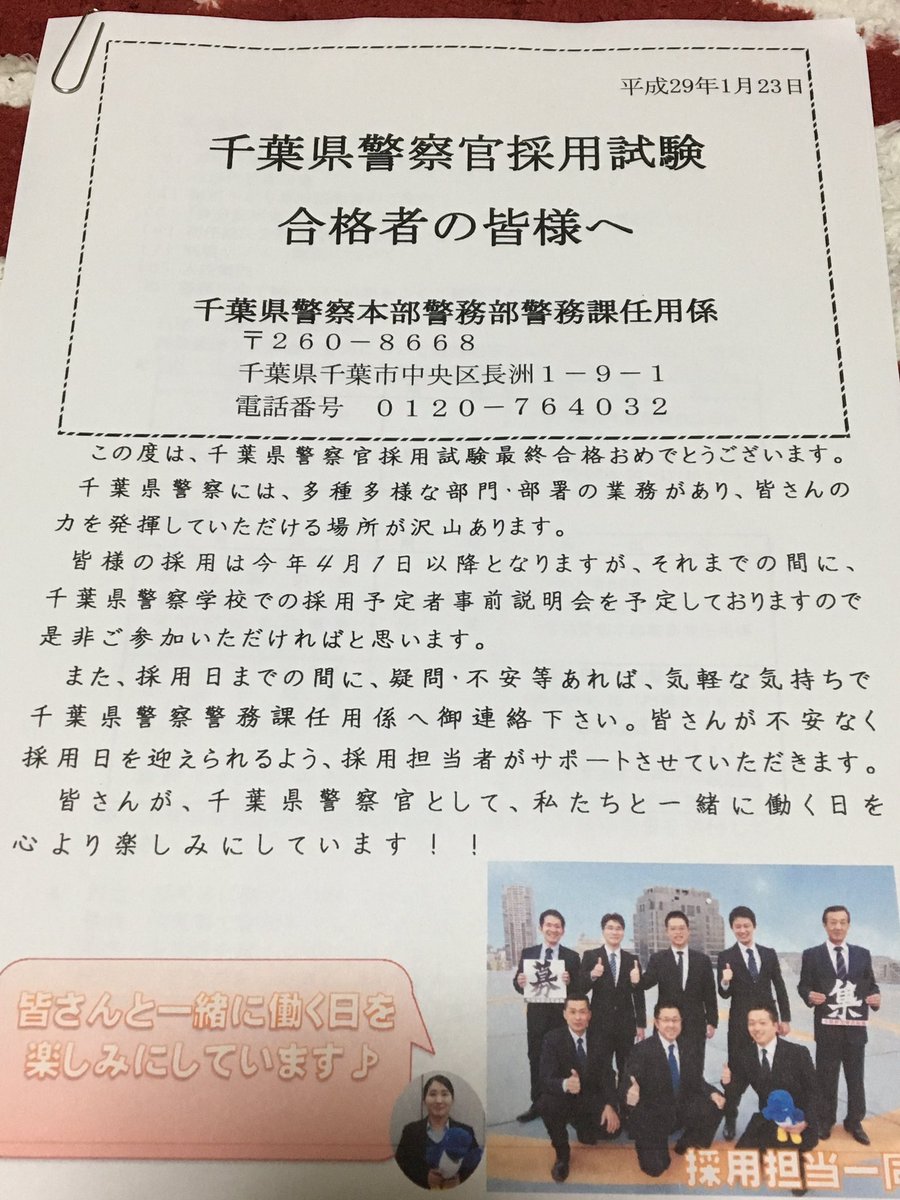 平成29年1月23日
千葉県警察官採用試験
合格者の皆様へ
千葉県警察本部警務部警務課任用係
〒２６０－８６６８
千葉県千葉市中央区長洲１－９－１
電話番号　０１２０－７６４０３２
この度は、千葉県警察官採用試験最終合格おめでとうございます。
千葉県警察には、多種多様な部門・部署の業務があり、皆さんの
力を発揮していただける場所が沢山あります。
皆様の採用は今年4月1日以降となりますが、それまでの間に、
千葉県警察学校での採用予定者事前説明会を予定しておりますので
是非ご参加いただければと思います。
また、採用日までの間に、疑問・不安等あれば、気軽な気持ちで
千葉県警察警務課任用係へ御連絡下さい。皆さんが不安なく
採用日を迎えられるよう、採用担当者がサポートさせていただきます。
皆さんが、千葉県警察官として、私たちと一緒に働く日を
心より楽しみにしています！！
皆さんと一緒に働く日を
楽しみにしています♪
募
集
採用担当一同